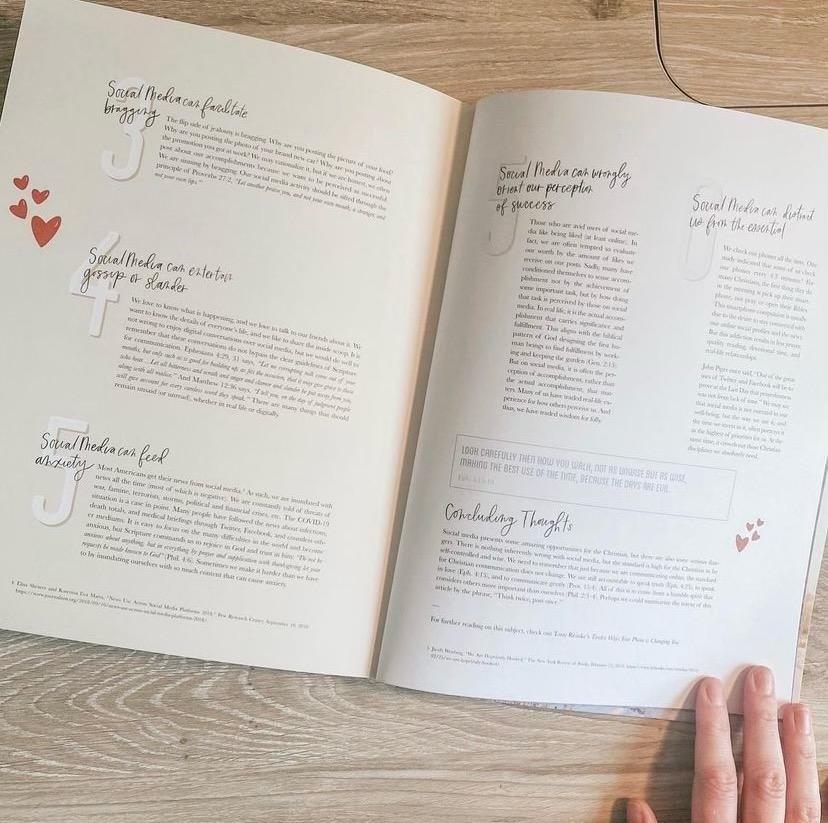 3
Social Media can facilitate
bragging
The flip side of jealousy is bragging. Why are you posting the picture of your food?
Why are you posting the photo of your brand new car? Why are you posting about
the promotion you got at work? We may rationalize it, but if we are honest, we often
post about our accomplishments because we want to be perceived as successful.
We are sinning by bragging. Our social media activity should be sifted through the
principle of Proverbs 27:2, "Let another praise you, and not your own mouth; a stranger, and
not your own lips."
4
Social Media can entertain
gossip or slander
We love to know what is happening, and we love to talk to our friends about it. We
want to know the details of everyone's life, and we like to share the inside scoop. It is
not wrong to enjoy digital conversations over social media, but we would do well to
remember that these conversations do not bypass the clear guidelines of Scripture
for communication. Ephesians 4:29, 31 says, "Let no corrupting talk come out of your
mouths, but only such as is good for building up, as fits the occasion, that it may give grace to those
who hear…Let all bitterness and wrath and anger and clamor and slander be put away from you,
along with all malice." And Matthew 12:36 says, "I tell you, on the day of judgment people
will give account for every careless word they speak." There are many things that should
remain unsaid (or unread), whether in real life or digitally.
5
Social Media can feed
anxiety
Most Americans get their news from social media. As such, we are inundated with
news all the time (most of which is negative). We are constantly told of threats of
war, famine, terrorists, storms, political and financial crises, etc. The COVID-19
situation is a case in point. Many people have followed the news about infections,
death totals, and medical briefings through Twitter, Facebook, and countless other
er mediums. It is easy to focus on the many difficulties in the world and become
anxious, but Scripture commands us to rejoice in God and trust in him: "Do not be
anxious about anything, but in everything by prayer and supplication with thanksgiving let your
requests be made known to God" (Phil. 4:6). Sometimes we make it harder than we have
to by inundating ourselves with so much content that can cause anxiety.
Elisa Shearer and Katerina Eva Matsa, "News Use Across Social Media Platforms 2018," Pew Research Center, September 10, 2018
Social Media can wrongly
orient our perception
of success
Those who are avid users of social me-
dia like being liked (at least online). In
fact, we are often tempted to evaluate
our worth by the amount of likes we
receive on our posts. Sadly, many have
conditioned themselves to sense accom-
plishment not by the achievement of
some important task, but by how doing
that task is perceived by those on social
media. In real life, it is the actual accom-
plishment that carries significance and
fulfillment. This aligns with the biblical
pattern of God designing the first hu-
man beings to find fulfillment by work-
ing and keeping the garden (Gen. 2:15).
But on social media, it is often the per-
ception of accomplishment, rather than
the actual accomplishment, that mat-
ters. Many of us have traded real-life ex-
perience for how others perceive us. And
thus, we have traded wisdom for folly.
Social Media can distract
us from the essential
We check our phones all the time. One
study indicated that some of us check
our phones every 4.3 minutes. For
many Christians, the first thing they do
in the morning is pick up their smart-
phone, not pray or open their Bibles.
This smartphone compulsion is usually
due to the desire to stay connected with
our online social profiles and news.
But this addiction results in less prayer,
quality reading, devotional time, and
real-life relationships.
John Piper once said, "One of the great
uses of Twitter and Facebook will be to
prove at the Last Day that prayerlessness
was not from lack of time." We may say
that social media is not essential to our
well-being, but the way we use it, and
the time we invest in it, often portrays it
as the highest of priorities for us. At the
same time, it crowds out those Christian
disciplines we absolutely need.
LOOK CAREFULLY THEN HOW YOU WALK, NOT AS UNWISE BUT AS WISE,
MAKING THE BEST USE OF THE TIME, BECAUSE THE DAYS ARE EVIL.
Eph. 5:15-16
Concluding Thoughts
Social media presents some amazing opportunities for the Christian, but there are also some serious dan-
gers. There is nothing inherently wrong with social media, but the standard is high for the Christian to be
self-controlled and wise. We need to remember that just because we are communicating online, the standard
for Christian communication does not change. We are still accountable to speak truth (Eph. 4:25), to speak
in love (Eph. 4:15), and to communicate grace (Prov. 15:4). All of this is to come from a humble spirit that
considers others more important than ourselves (Phil. 2:3-4). Perhaps we could summarize the intent of this
article by the phrase, "Think twice, post once."
For further reading on this subject, check out Tony Reinke's Twelve Ways Your Phone is Changing You
Jacob Weisberg, "We Are Hopelessly Hooked," The New York Review of Books, February 25, 2016